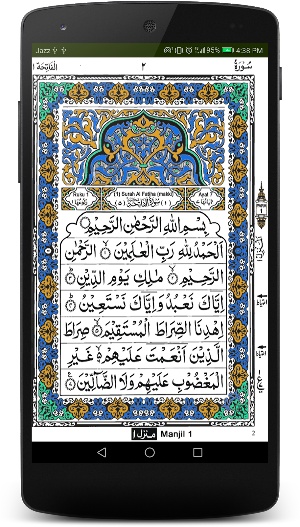 Jazz 95% 4:38 PM
سُوْرَةُ ٢ اَلْفَاتِحَة ١
Ruku 1 (1) Surah Al Fatiha (makki) Ayat 7
بِسْمِ اللّٰهِ الرَّحْمٰنِ الرَّحِيْمِ
اَلْحَمْدُ لِلّٰهِ رَبِّ الْعٰلَمِيْنَ ۙ الرَّحْمٰنِ
الرَّحِيْمِ ۙ مٰلِكِ يَوْمِ الدِّيْنِ ؕ
اِيَّاكَ نَعْبُدُ وَاِيَّاكَ نَسْتَعِيْنُ ؕ
اِهْدِنَا الصِّرَاطَ الْمُسْتَقِيْمَ ۙ صِرَاطَ
الَّذِيْنَ اَنْعَمْتَ عَلَيْهِمْ ۙ غَيْرِ
الْمَغْضُوْبِ عَلَيْهِمْ وَلَا الضَّآلِّيْنَ
منزل ١ Manjil 1 2